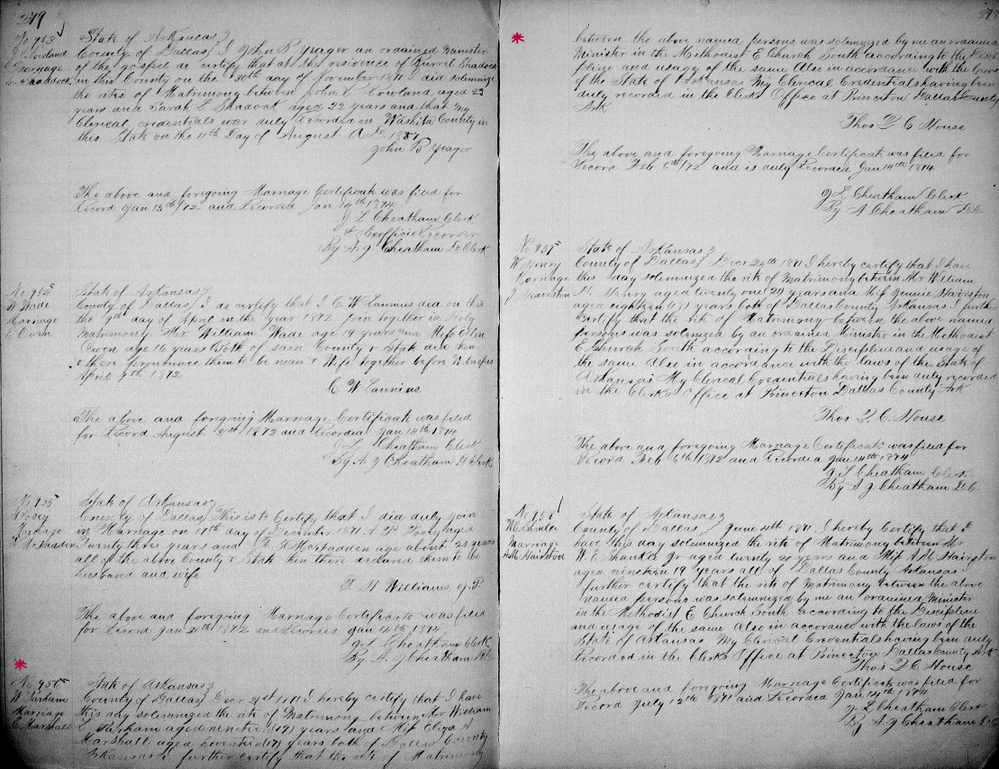 279
State of Arkansas
County of Dallas I John B Yeager an ordained Minister
of the gospel do certify that at the residence of
in this County on the 30th day of November 1871 did solemnize
the rites of Matrimony between John Rowland aged 23
years and Sarah aged 22 years and that my
Clerical credentials was duly Recorded in Washita County in
this State on the 11th Day of August AD
John B Yeager
The above and foregoing Marriage Certificate was filed for
Record Jan 15th /72 and Recorded Jan 14th 1874
J L Cheatham Clerk
& Exofficio Recorder
By A J Cheatham D Clerk
W Wade
Marriage
Owen
State of Arkansas
County of Dallas I do certify that I C W did on this
the day of April in the year 1872 Join together in Holy
Matrimony Mr William Wade age 19 years and Miss Ellen
Owen age 16 years Both of said County & State and then
& there pronounce them to be man & Wife together before Witnesses
April 9th 1872
C W
The above and foregoing Marriage Certificate was filed
for Record August 1872 and Recorded Jan 14th 1874
J L Cheatham Clerk
By A J Cheatham D Clerk
Marriage
State of Arkansas
County of Dallas This is to Certify that I did duly join
in Marriage on day of December 1871
Twenty three years and aged about 23 years
all of the above County & State then there declared them to be
husband and wife
Williams J.P
The above and foregoing Marriage Certificate was filed
for Record Jan 1872 and Recorded Jan 14th 1874
J L Cheatham Clerk
By A J Cheatham D C
W Parham
Marriage
E Marshall
State of Arkansas
County of Dallas 1871 I hereby certify that I have
this day solemnized the rite of Matrimony between Mr William
E Parham aged nineteen (19) years and Miss Eliza
Marshall aged seventeen (17) years both of Dallas County
Arkansas I further certify that the rite of Matrimony
between the above named persons was solemnized by me an ordained
Minister in the Methodist E Church South according to the Disci
pline and usage of the same Also in accordance with the laws
of the State of Arkansas My Clerical Credentials having been
duly recorded in the Clerks Office at Princeton Dallas County
Ark
Thos D C House
The above and foregoing Marriage Certificate was filed for
Record Feb 6th /72 and is duly Recorded Jan 14th 1874
J L Cheatham Clerk
By A Cheatham D C
Marriage
J Hairston
State of Arkansas
County of Dallas 1871 I hereby certify that I have
this day solemnized the rite of Matrimony between Mr William
aged twenty one years and Miss Jennie Hairston
aged years both of Dallas County Arkansas I further
certify that the rite of Matrimony before the above named
persons was solemnized by me an ordained Minister in the Methodist
E Church South according to the Discipline and usage of
the same Also in accordance with the laws of the State of
Arkansas My Clerical Credentials having been duly recorded
in the Clerks Office at Princeton Dallas County Ark
Thos D. C. House
The above and foregoing Marriage Certificate was filed for
Record Feb 6th 1872 and Recorded Jan 14th 1874
J L Cheatham Clerk
By A J Cheatham D C
Marriage
A M Hairston
State of Arkansas
County of Dallas June 1871 I hereby Certify that I
have this day solemnized the rite of Matrimony between Mr
W E Jr aged twenty years and Miss A M Hairston
aged nineteen 19 years all of Dallas County Arkansas I
further certify that the rite of Matrimony between the above
named persons was solemnized by me an ordained Minister
in the Methodist E Church South according to the Discipline
and usage of the same Also in accordance with the laws of the
State of Arkansas My Clerical Credentials having been duly
Recorded in the Clerks Office at Princeton Dallas County Ark
Thos D C House
The above and foregoing Marriage Certificate was filed for
Record July 12th 1871 and Recorded Jan 14th 1874
J L Cheatham Clerk
By A J Cheatham D C